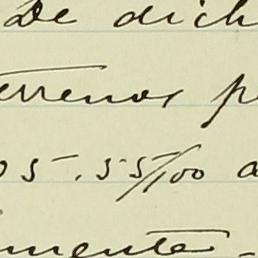 De dich
errenos pe
05.55/100 a
imente-